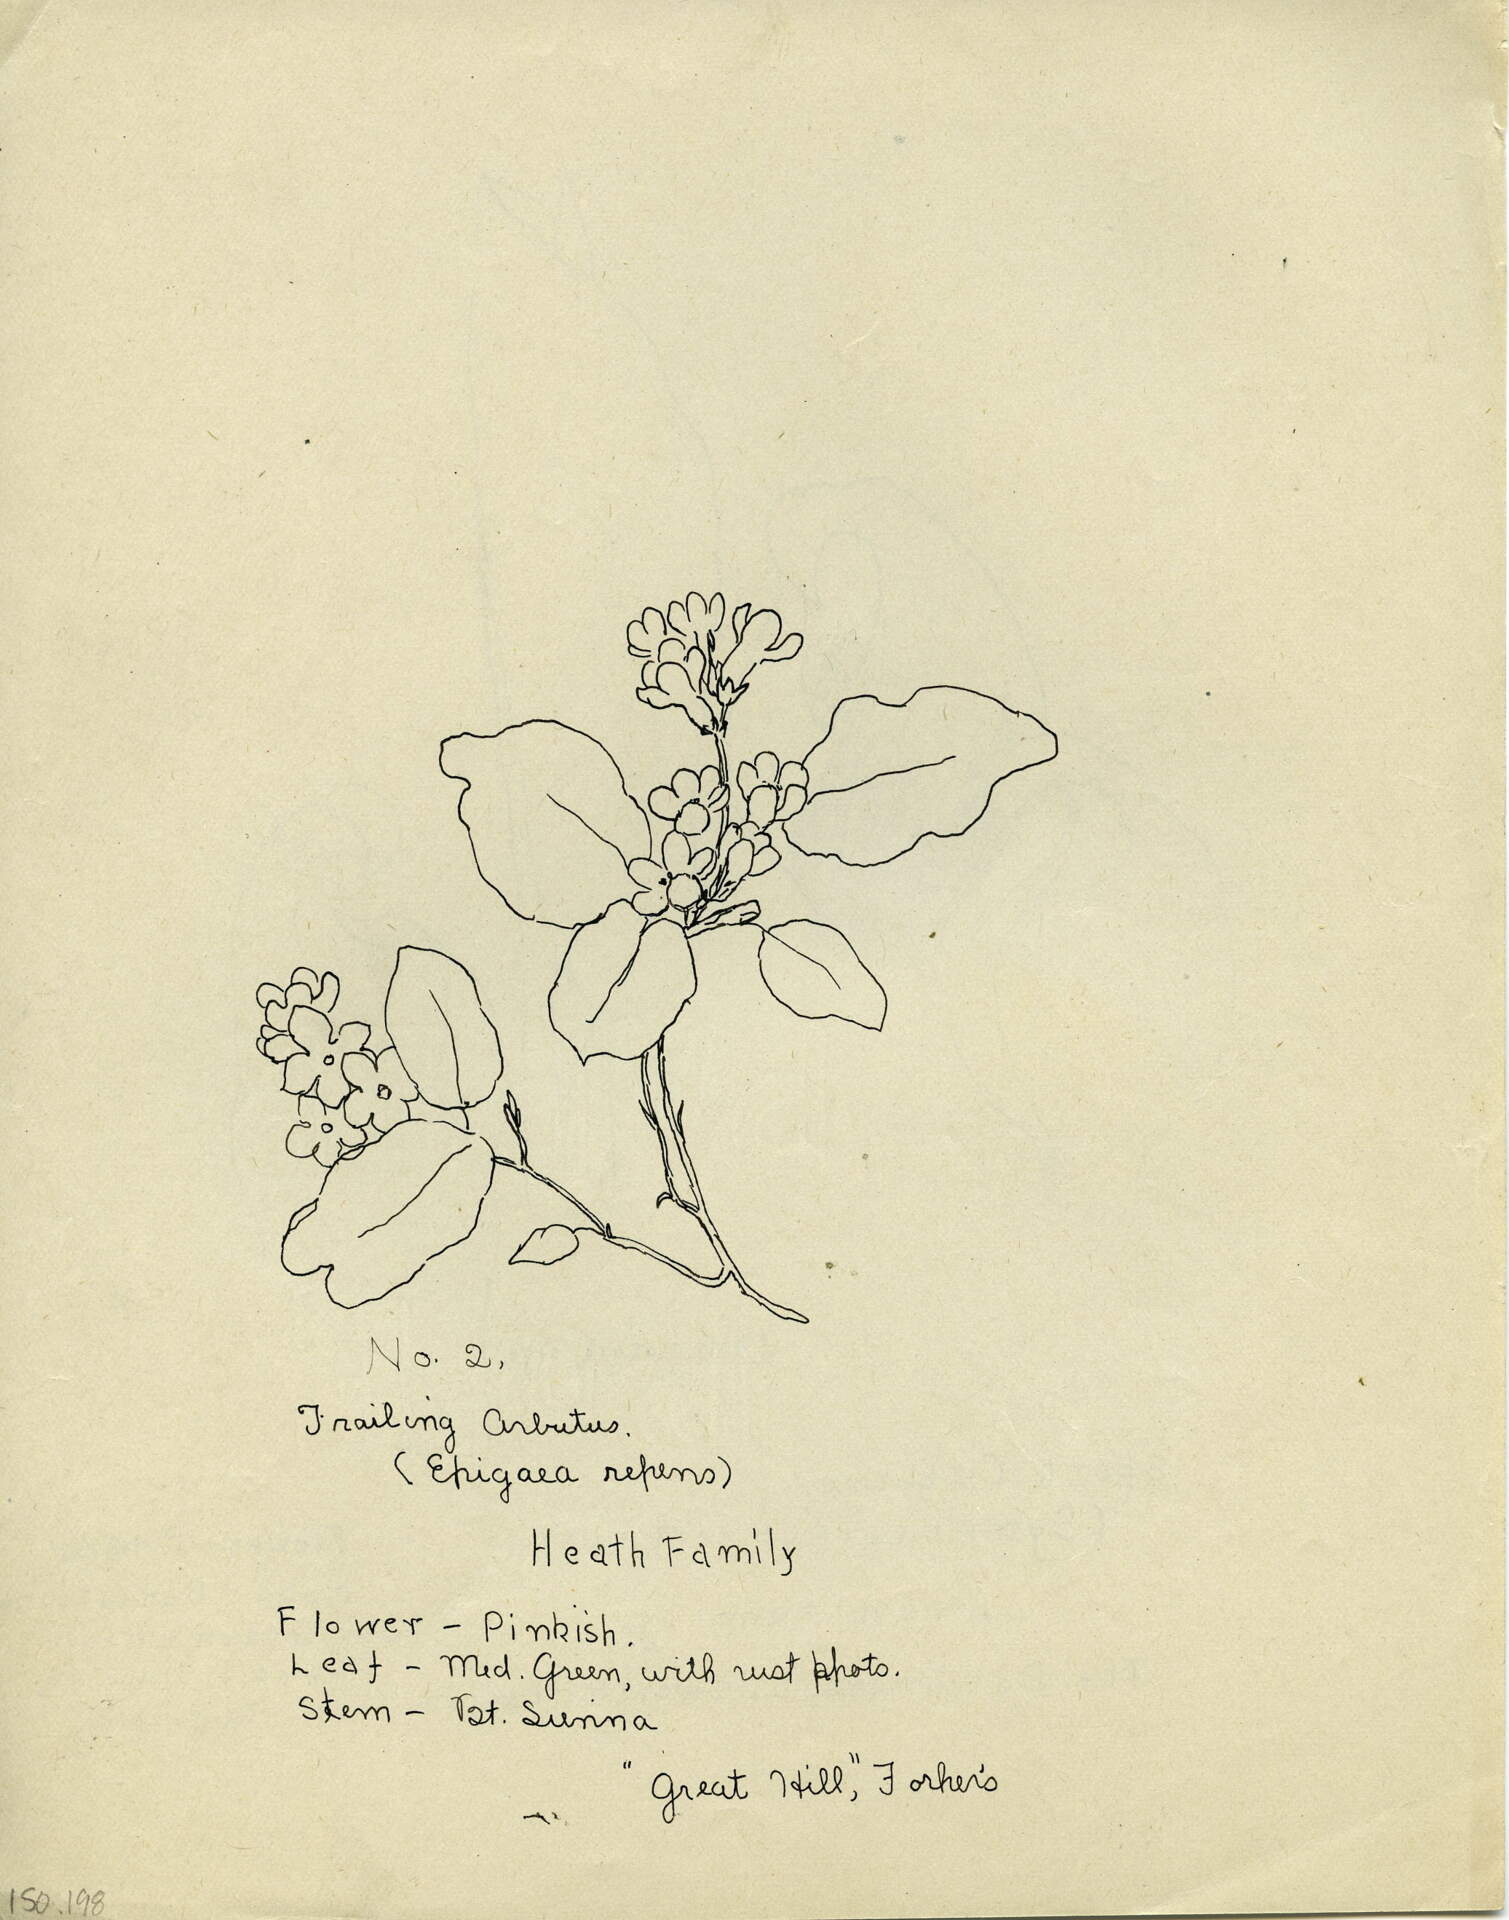 No. 2.
Trailing Arbutus.
(Epigaea repens)
Heath Family
Flower - Pinkish.
Leaf - Med. Green, with rust
Stem - Bt. Sienna
"Great Hill,"
150.198